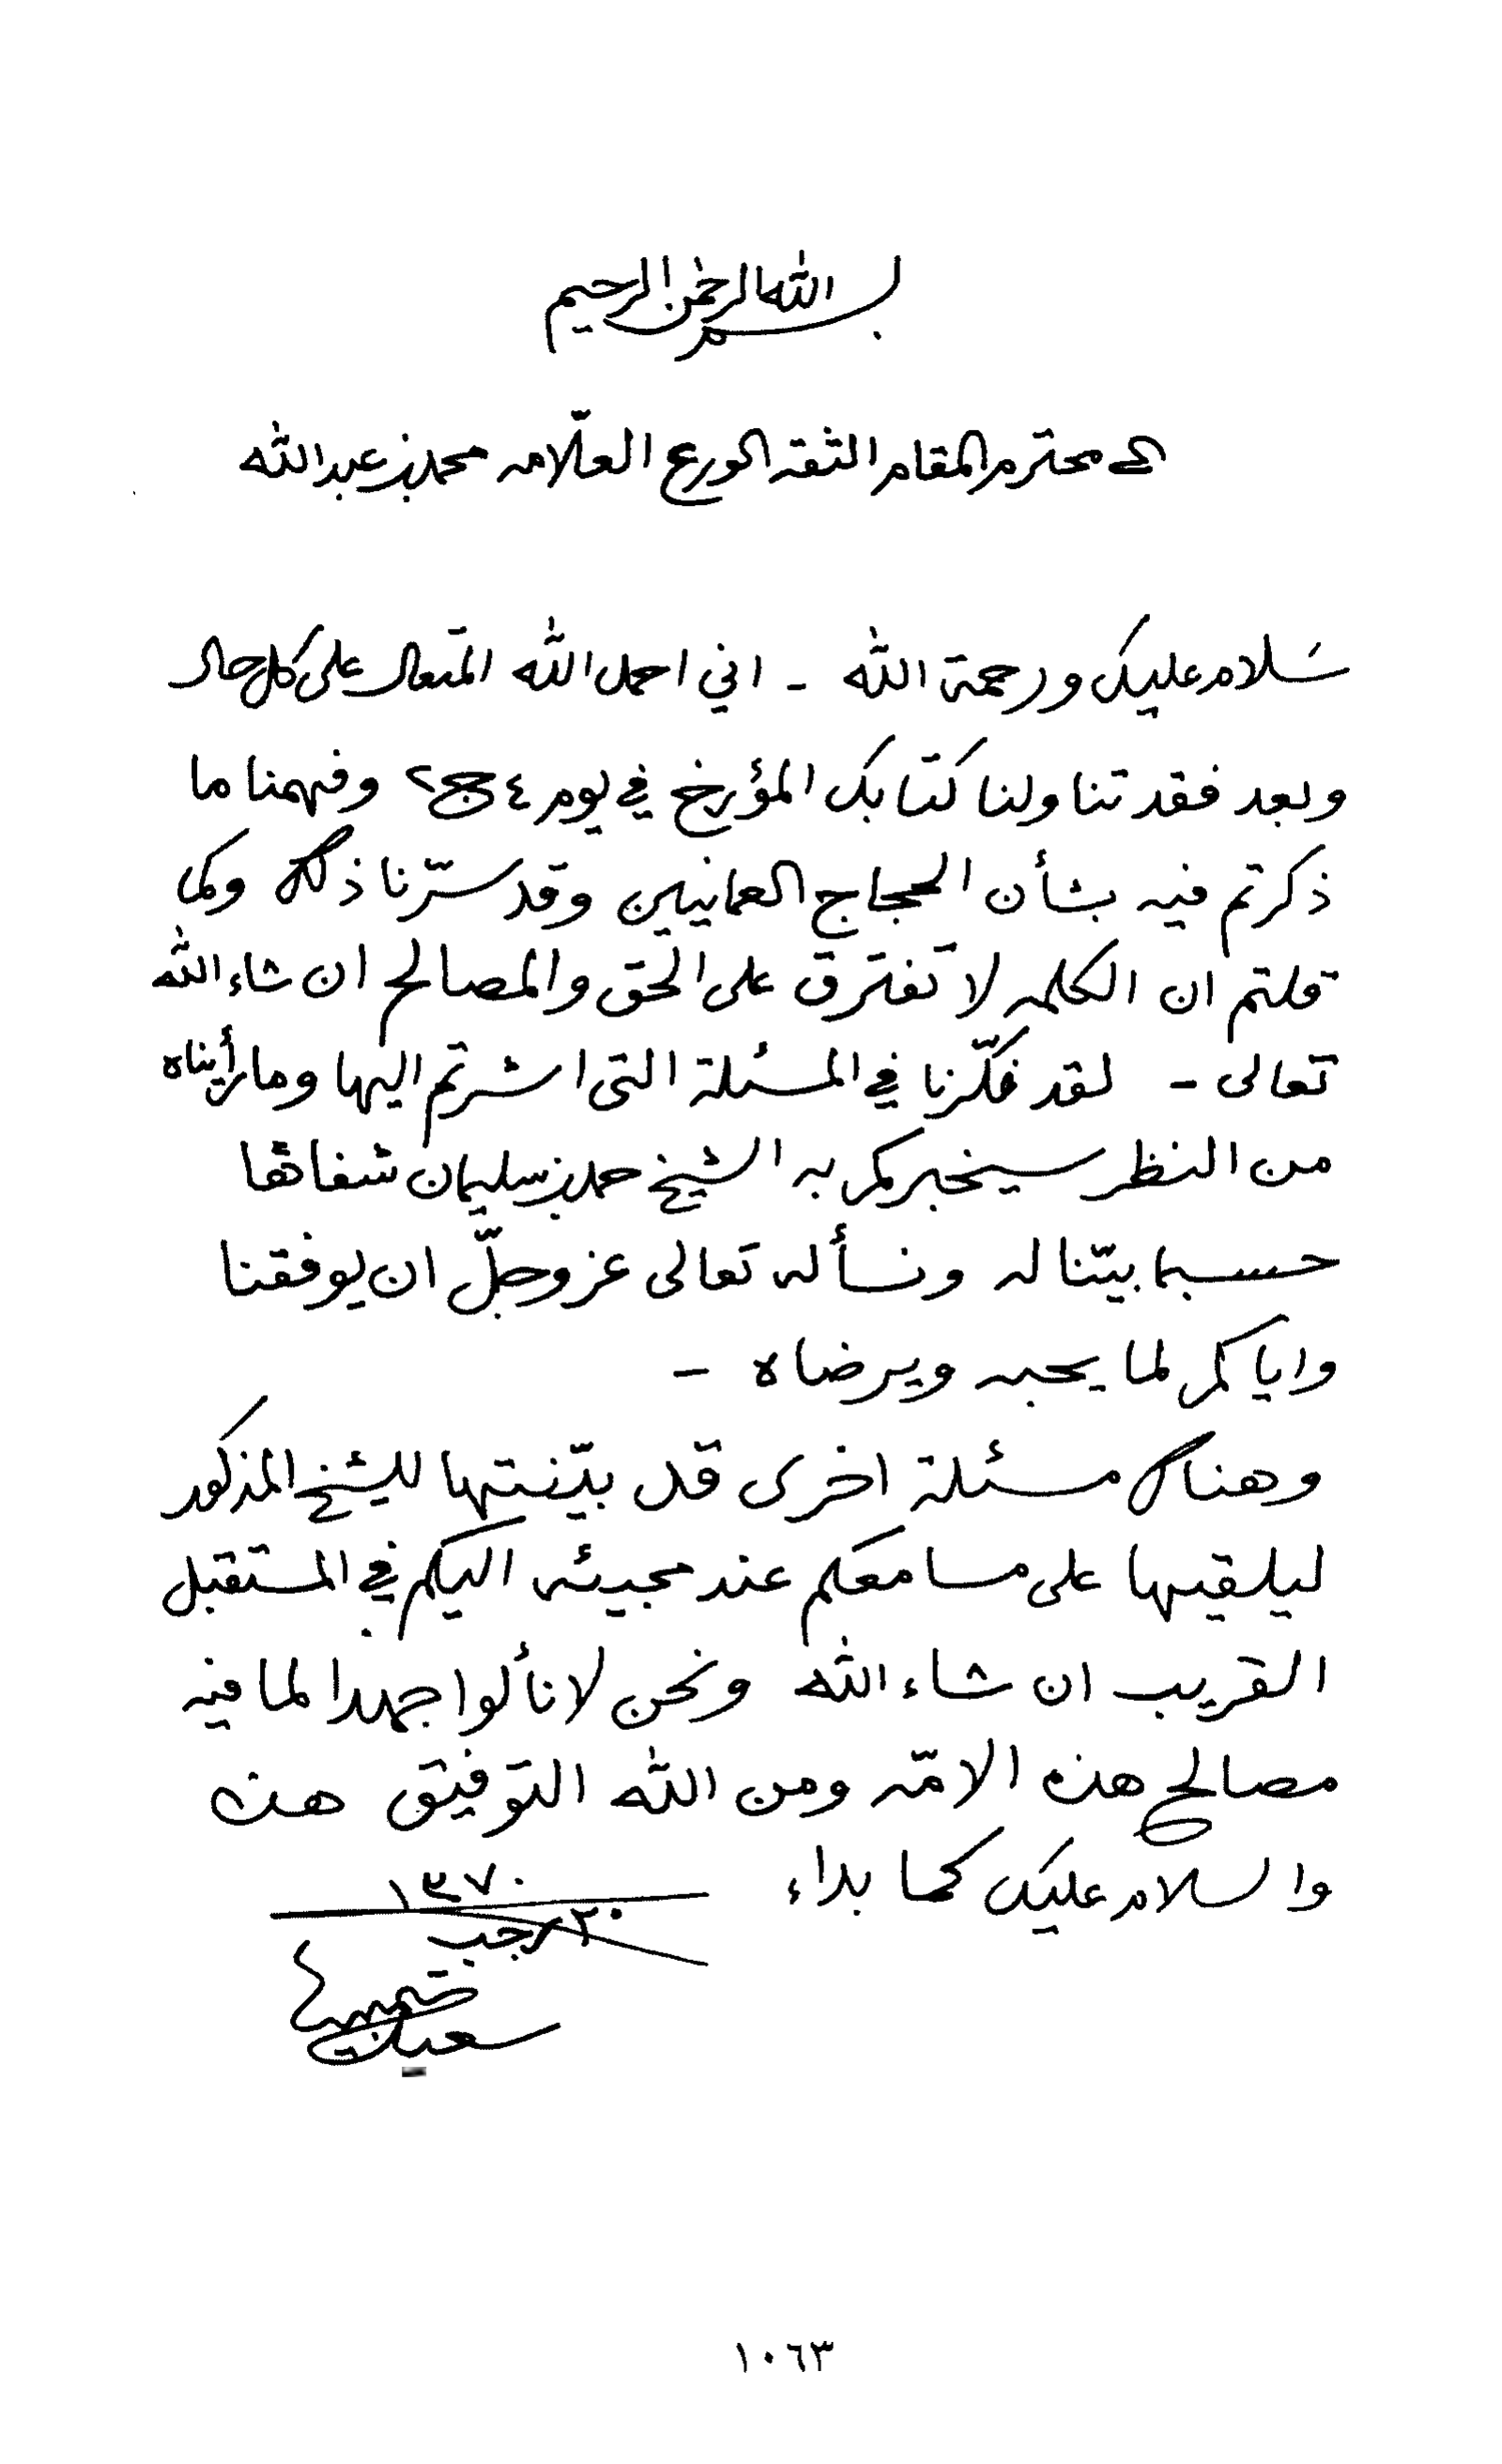 بسم الله الرحمن الرحيم
الى محترم المقام الثقه الورع العلّامه محمد بن عبدالله
سَلام عليك ورحمة الله - اني احمد الله المتعال على كل حال
وبعد فقد تناولنا كتابك المؤرخ في يوم ٤ ج٢ وفهمنا ما
ذكرتم فيه بشأن الحجاج العمانيين وقد سرّنا ذلك وكما
قلتم ان الكلمه لا تفترق على الحق والمصالح ان شاء الله
تعالى - لقد فكّرنا في المسئلة التى اشرتم اليها وما رأيناه
من النظر سيخبركم به الشيخ حمد بن سليمان شفاهًا
حسبما بيّنا له ونسأله تعالى عز وجلّ ان يوفقنا
واياكم لما يحبه ويرضاه -
وهناك مسئلة اخرى قد بيّنتها للشيخ المذكور
ليلقيها على مسامعكم عند مجيئه اليكم في المستقبل
القريب ان شاء الله ونحن لا نألوا جهدا لما فيه
مصالح هذه الامّه ومن الله التوفيق هذه
والسلام عليك كما بداء
١٣٧٠
٣٠ رجب
سعيد
١٠٦٣